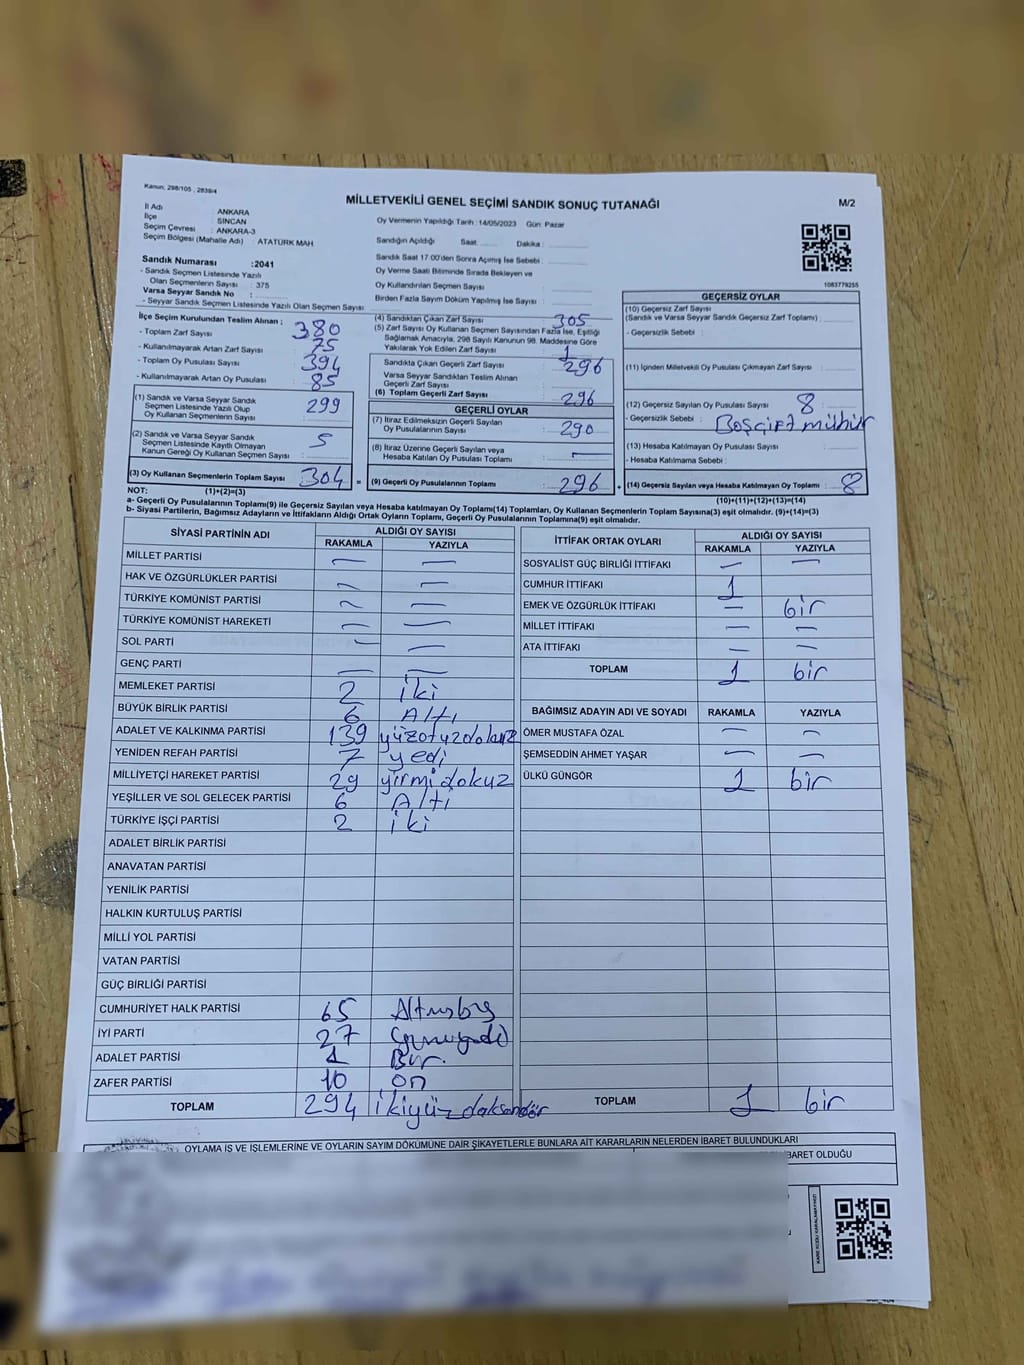 Kanun; 298/105 , 2839/4
MİLLETVEKİLİ GENEL SEÇİMİ SANDIK SONUÇ TUTANAĞI
M/2
İl Adı : ANKARA
İlçe : SİNCAN
Seçim Çevresi : ANKARA-3
Seçim Bölgesi (Mahalle Adı) : ATATÜRK MAH
Oy Vermenin Yapıldığı Tarih : 14/05/2023 Gün: Pazar
Sandığın Açıldığı Saat: Dakika :
Sandık Saat 17:00'den Sonra Açımış İse Sebebi :
Oy Verme Saati Bitiminde Sırada Bekleyen ve
Oy Kullandırılan Seçmen Sayısı :
Birden Fazla Sayım Döküm Yapılmış İse Sayısı :
1083779255
Sandık Numarası :2041
- Sandık Seçmen Listesinde Yazılı
Olan Seçmenlerin Sayısı : 375
Varsa Seyyar Sandık No :
- Seyyar Sandık Listesinde Yazılı Olan Seçmen Sayısı
İlçe Seçim Kurulundan Teslim Alınan ;
- Toplam Zarf Sayısı 380
- Kullanılmayarak Artan Zarf Sayısı : 75
- Toplam Oy Pusulası Sayısı 394
- Kullanılmayarak Artan Oy Pusulası 85
(1) Sandık ve Varsa Seyyar Sandık
Seçmen Listesinde Yazılı Olup
Oy Kullanan Seçmenlerin Sayısı 299
(2) Sandık ve Varsa Seyyar Sandık
Seçmen Listesinde Kayıtlı Olmayan
Kanun Gereği Oy Kullanan Seçmen Sayısı 5
(3) Oy Kullanan Seçmenlerin Toplam Sayısı 304
(1)+(2)=(3)
(4) Sandıktan Çıkan Zarf Sayısı : 305
(5) Zarf Sayısı Oy Kullanan Seçmen Sayısından Fazla İse, Eşitliği
Sağlamak Amacıyla, 298 Sayılı Kanunun 98. Maddesine Göre
Yakılarak Yok Edilen Zarf Sayısı : 1
Sandıkta Çıkan Geçerli Zarf Sayısı : 296
Varsa Seyyar Sandıktan Teslim Alınan
Geçerli Zarf Sayısı :
(6) Toplam Geçerli Zarf Sayısı : 296
GEÇERLİ OYLAR
(7) İtiraz Edilmeksizin Geçerli Sayılan
Oy Pusulalarının Sayısı : 290
(8) İtiraz Üzerine Geçerli Sayılan veya
Hesaba Katılan Oy Pusulası Toplamı : —
= (9) Geçerli Oy Pusulalarının Toplamı : 296
GEÇERSİZ OYLAR
(10) Geçersiz Zarf Sayısı
(Sandık ve Varsa Seyyar Sandık Geçersiz Zarf Toplamı) :
- Geçersizlik Sebebi :
(11) İçinden Milletvekili Oy Pusulası Çıkmayan Zarf Sayısı :
(12) Geçersiz Sayılan Oy Pusulası Sayısı : 8
- Geçersizlik Sebebi : Boşçift mühür
(13) Hesaba Katılmayan Oy Pusulası Sayısı :
- Hesaba Katılmama Sebebi :
+ (14) Geçersiz Sayılan veya Hesaba Katılmayan Oy Toplamı : 8
(10)+(11)+(12)+(13)=(14)
NOT:
a- Geçerli Oy Pusulalarının Toplamı(9) ile Geçersiz Sayılan veya Hesaba Katılmayan Oy Toplamı(14) Toplamları, Oy Kullanan Seçmenlerin Toplam Sayısına(3) eşit olmalıdır. (9)+(14)=(3)
b- Siyasi Partilerin, Bağımsız Adayların ve İttifakların Aldığı Oyların Toplamı, Geçerli Oy Pusulalarının Toplamına(9) eşit olmalıdır.
SİYASİ PARTİNİN ADI ALDIĞI OY SAYISI
RAKAMLA YAZIYLA
MİLLET PARTİSİ — —
HAK VE ÖZGÜRLÜKLER PARTİSİ — —
TÜRKİYE KOMÜNİST PARTİSİ — —
TÜRKİYE KOMÜNİST HAREKETİ — —
SOL PARTİ — —
GENÇ PARTİ — —
MEMLEKET PARTİSİ 2 iki
BÜYÜK BİRLİK PARTİSİ 6 Altı
ADALET VE KALKINMA PARTİSİ 139 yüzotuzdokuz
YENİDEN REFAH PARTİSİ 7 yedi
MİLLİYETÇİ HAREKET PARTİSİ 29 yirmi dokuz
YEŞİLLER VE SOL GELECEK PARTİSİ 6 Altı
TÜRKİYE İŞÇİ PARTİSİ 2 iki
ADALET BİRLİK PARTİSİ
ANAVATAN PARTİSİ
YENİLİK PARTİSİ
HALKIN KURTULUŞ PARTİSİ
MİLLİ YOL PARTİSİ
VATAN PARTİSİ
GÜÇ BİRLİĞİ PARTİSİ
CUMHURİYET HALK PARTİSİ 65 Altmışbeş
İYİ PARTİ 27
ADALET PARTİSİ 1 Bir.
ZAFER PARTİSİ 10 on
TOPLAM 294 ikiyüz doksandör
İTTİFAK ORTAK OYLARI ALDIĞI OY SAYISI
RAKAMLA YAZIYLA
SOSYALİST GÜÇ BİRLİĞİ İTTİFAKI — —
CUMHUR İTTİFAKI 1
EMEK VE ÖZGÜRLÜK İTTİFAKI — bir
MİLLET İTTİFAKI — —
ATA İTTİFAKI — —
TOPLAM 1 bir
BAĞIMSIZ ADAYIN ADI VE SOYADI RAKAMLA YAZIYLA
ÖMER MUSTAFA ÖZAL — —
ŞEMSEDDİN AHMET YAŞAR — —
ÜLKÜ GÜNGÖR 1 bir
TOPLAM 1 bir
OYLAMA İŞ VE İŞLEMLERİNE VE OYLARIN SAYIM DÖKÜMÜNE DAİR ŞİKAYETLERLE BUNLARA AİT KARARLARIN NELERDEN İBARET BULUNDUKLARI
BARET OLDUĞU
KARE KODU KARALAMAYINIZ!